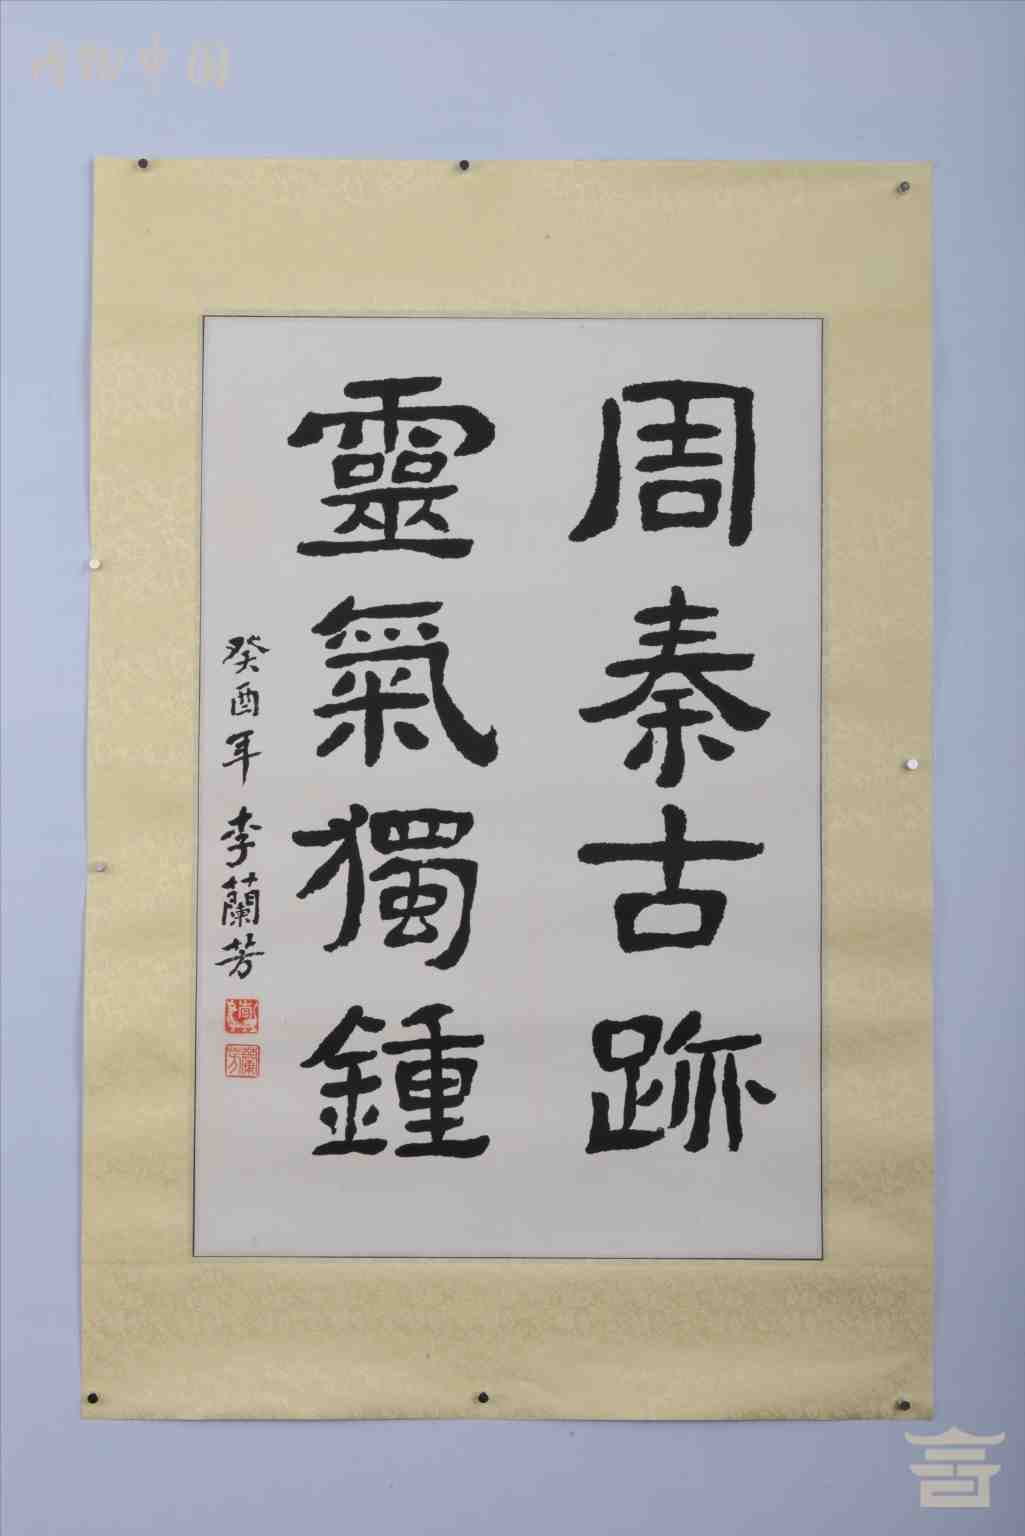 周秦古跡
靈氣獨鍾
癸酉年 李蘭芳
博物中国